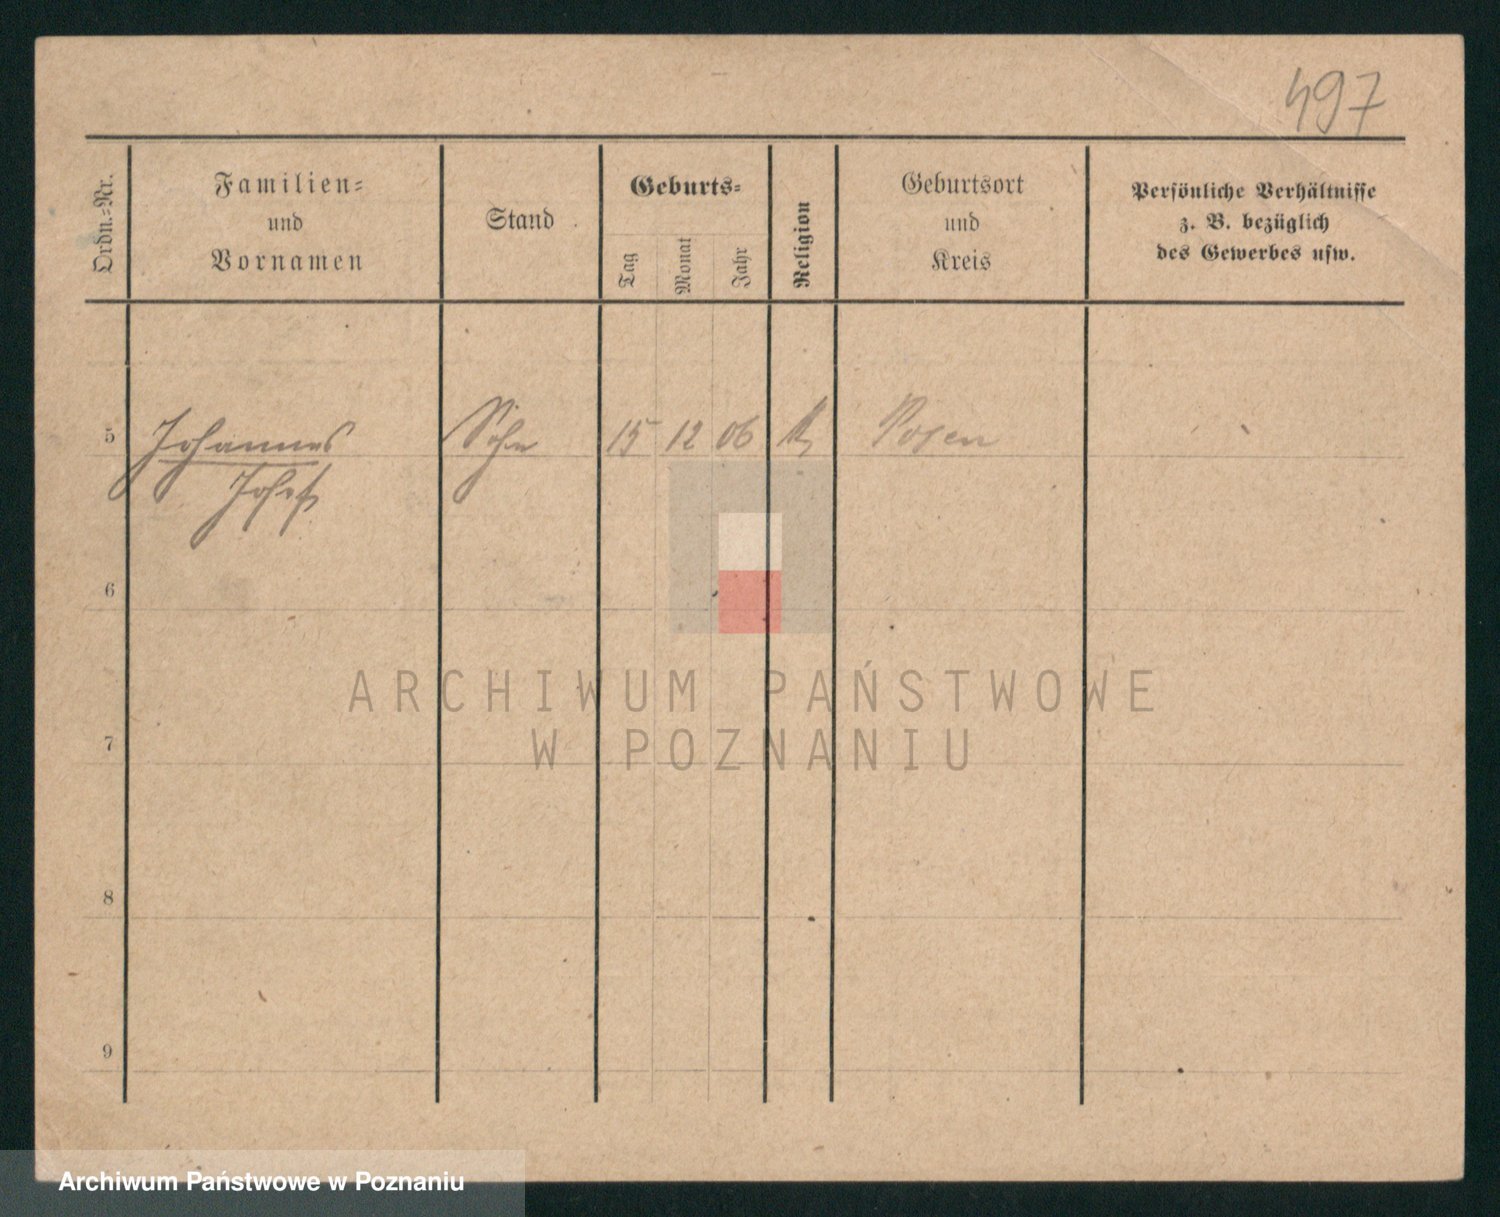 497
Ordn.=Nr.
Familien=
und
Vornamen
Stand
Geburts=
Tag
Monat
Jahr
Religion
Geburtsort
und
Kreis
Persönliche Verhältnisse
z. B. bezüglich
des Gewerbes usw.
5 Johannes Sohn 15 12 06 Posen
Josef
6
7
8
9
ARCHIWUM PAŃSTWOWE
W POZNANIU
Archiwum Państwowe w Poznaniu